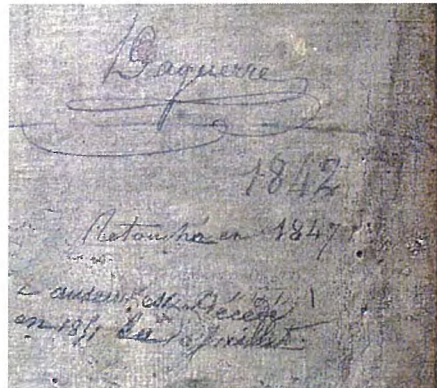 Daguerre
1842
Retouché en 1847
auteur est Décédé
en juillet